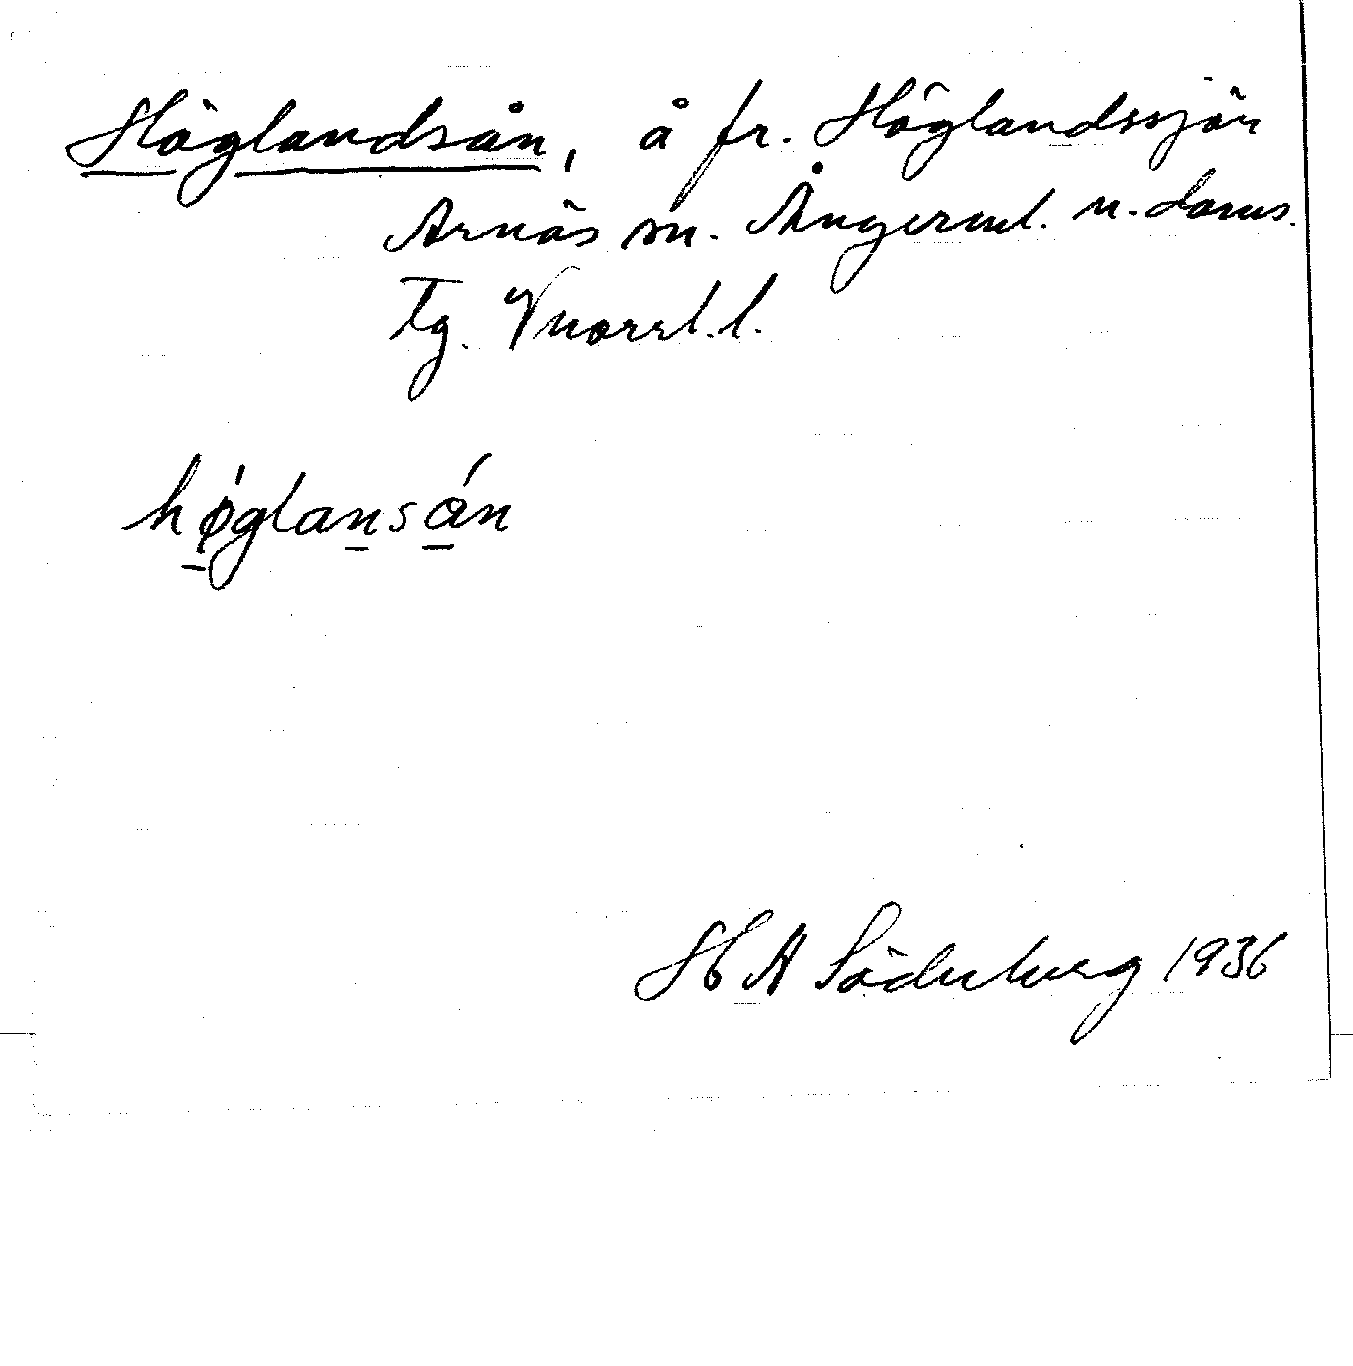 Höglandsån, å fr. Höglandssjön
Arnäs sn. Ångerml. n. dams.
Tg. Vnorrl. l.
høglansån
H A Söderberg 1936